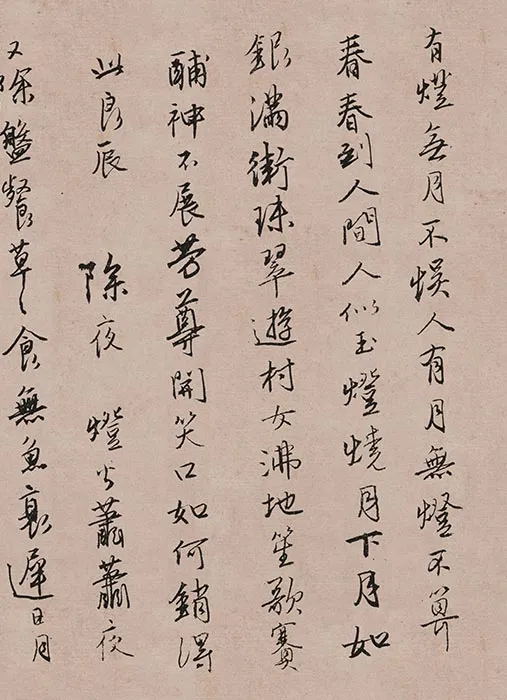 有燈無月不悞人有月無燈不算
春春到人間人似玉燈燒月下月如
銀滿街珠翠遊村女沸地笙歌賽
神不展芳尊開笑口如何銷得
此良辰 除夜 燈火蕭蕭夜
又深盤餐草〻食無魚衰遲日月